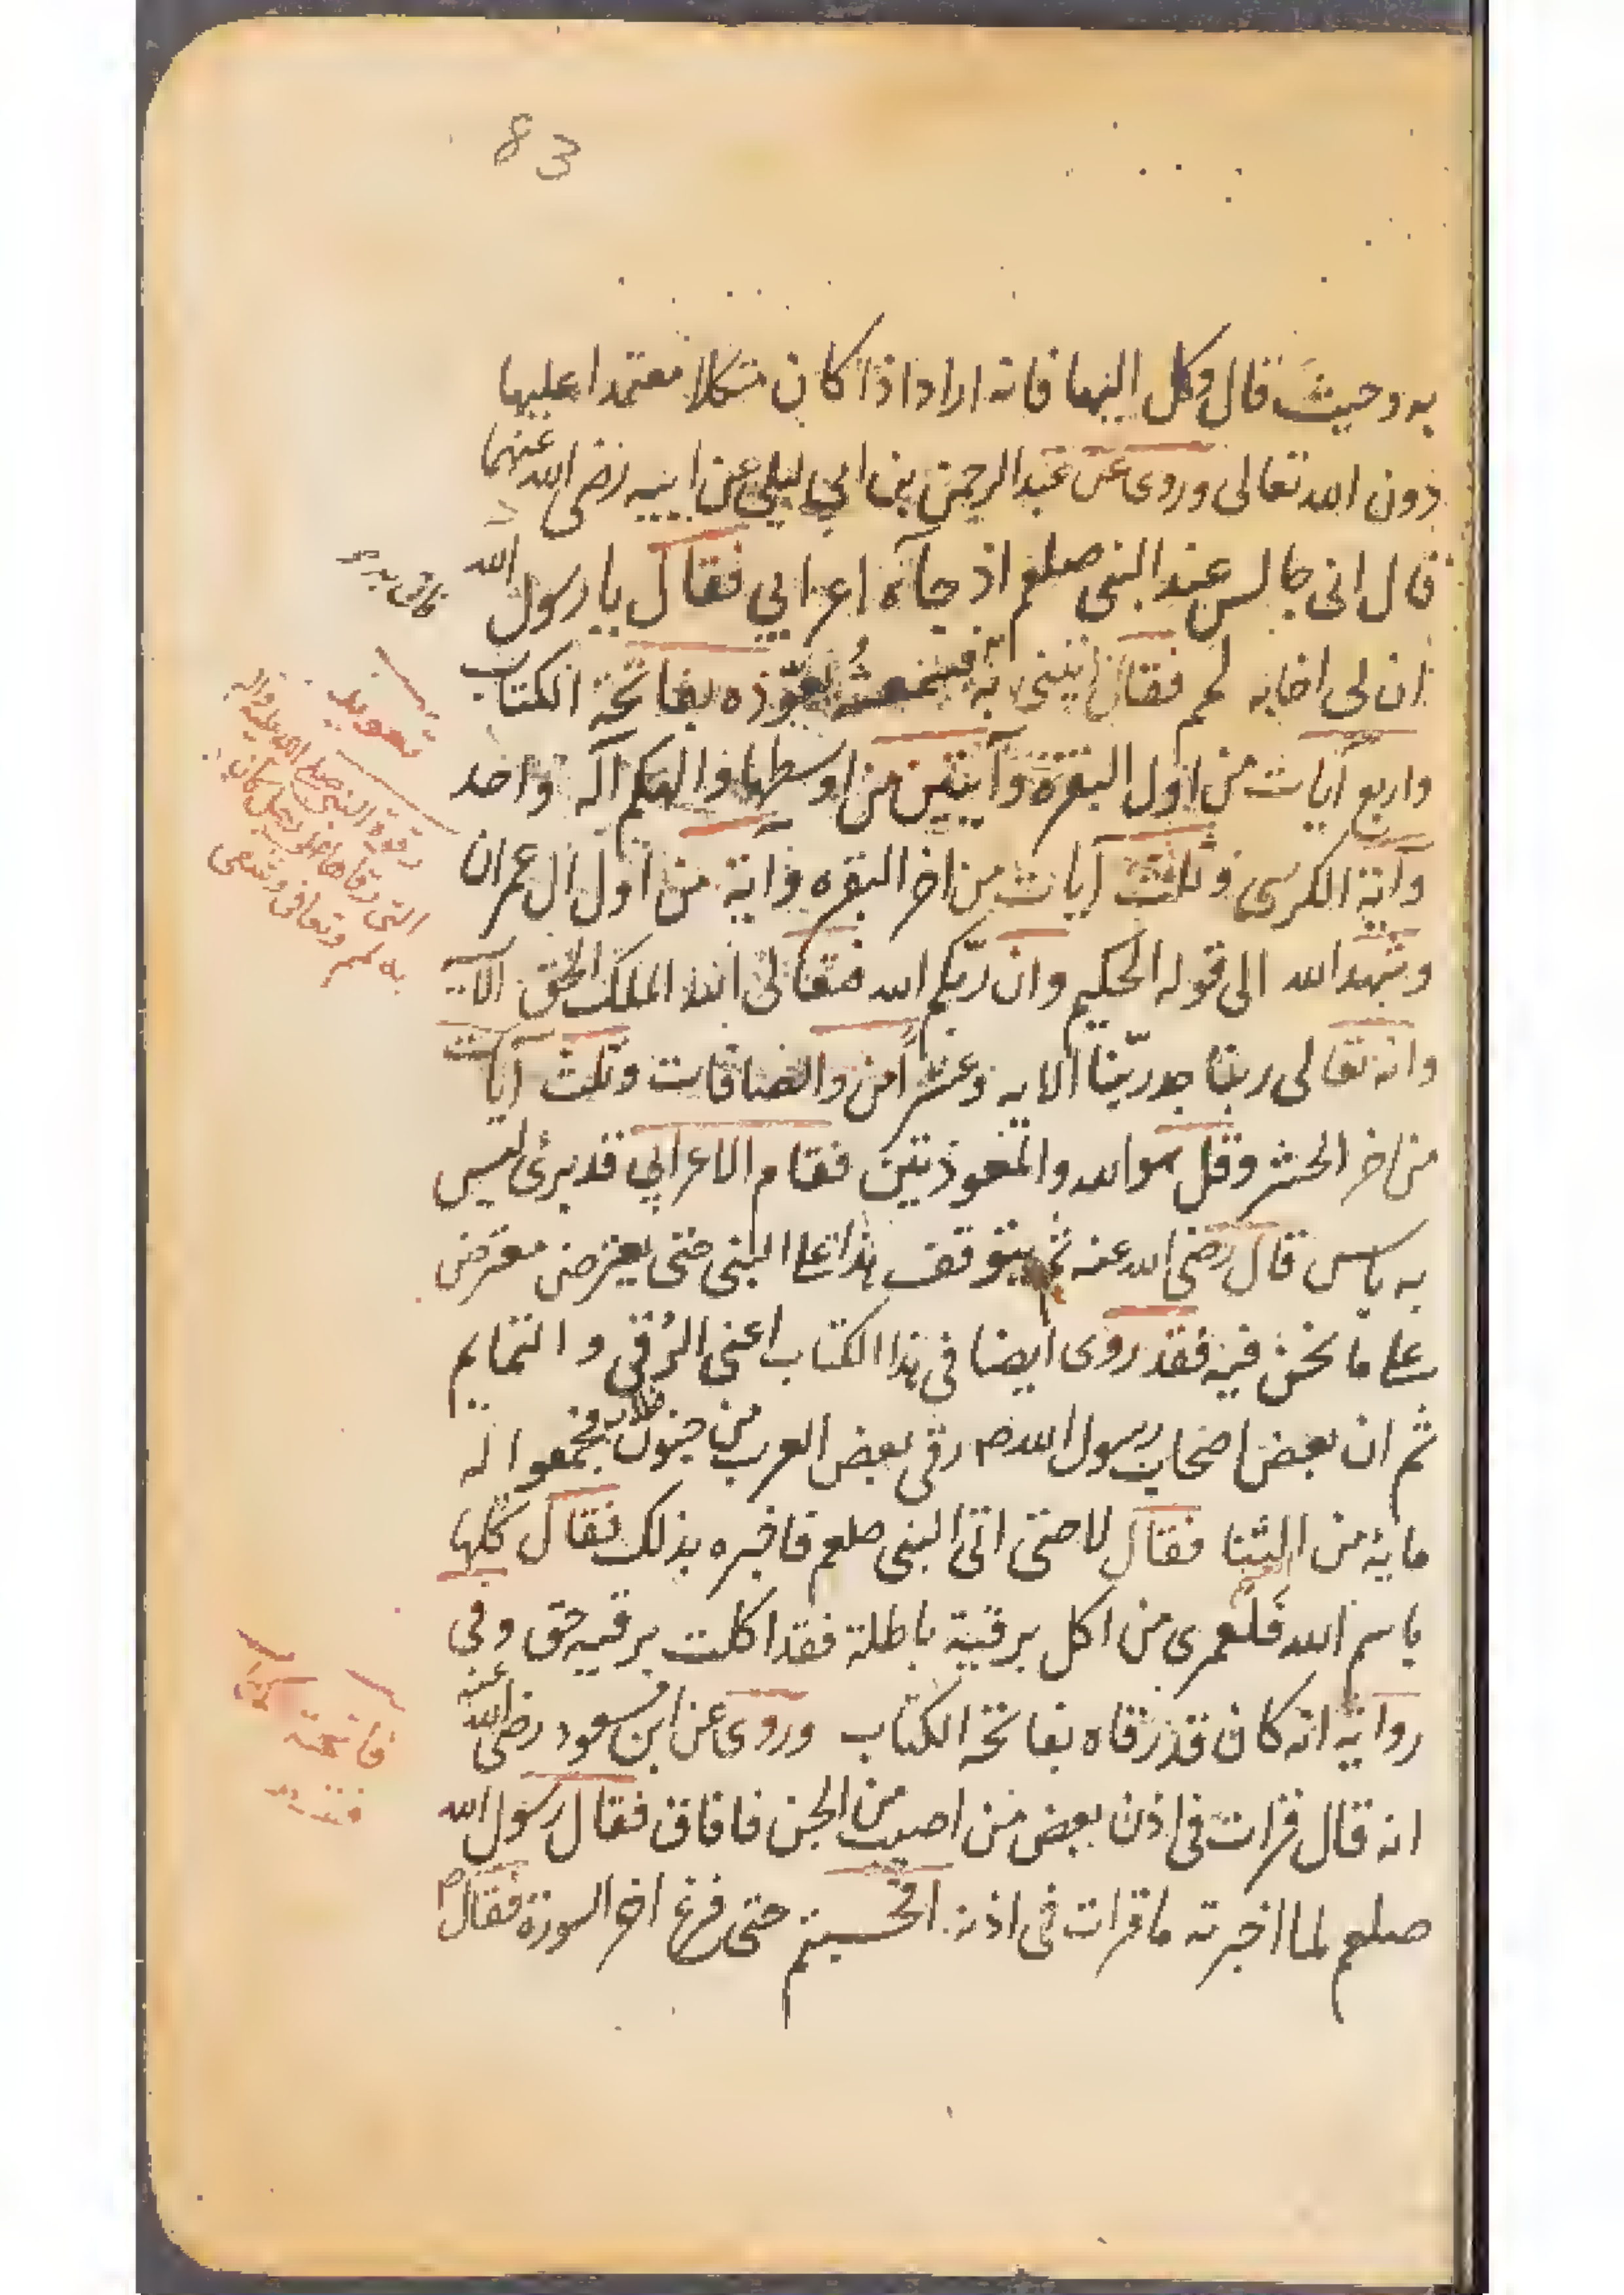 83
به وحيث قال وكل اليها فانه اراد اذا كان متكلا معتمدا عليها
دون الله تعالى وروى عن عبد الرحمن بن ابي ليلى عن ابيه رضى الله عنهما
قال انى جالس عند النبى صلعم اذ جآءه اعرابي فقال يا رسول الله
ان لى اخا به لمم فقال ايتنى به فسمعته يعوّذه بفاتحة الكتاب
واربع آيات من اول البقرة وآيتين من اوسطها والهكم اله واحد
وآية الكرسى وثلث آيات من اخر البقره واية من اول ال عمران
وشهد الله الى قوله الحكيم وان ربّكم الله فتعالى الله الملك الحق الآيه
وانه تعالى جد ربّنا الايه وعشراً من والصافات وثلث آيات
من اخر الحشر وقل هو الله والمعوذتين فقام الاعرابي قد برئ ليس
به باس قال رضى الله عنه ثم يتوقف هذا على النبى حتى يعترض معترض
على ما نحن فيه فقد روى ايضا فى هذا الكتاب اعنى الرُقى والتمايم
ثم ان بعض اصحاب رسول الله صم رقى بعض العرب من جنون فجمعوا له
ماية من الشا فقال لا حتى اتى النبى صلعم فاخبره بذلك فقال كلها
باسم الله فلعمرى من اكل برقية باطلة فقد اكلت برقيه حق وفى
رواية انه كان قد رقاه بفاتحة الكتاب وروى عن ابن مسعود رضى الله عنه
انه قال قرات فى اذن بعض من اصيب من الجن فافاق فقال رسول الله
صلعم لما اخبرته ما قرات فى اذنه افحسبتم حتى فرغ اخر السورة فقال صم
تعويذ
رقوة النبى صلع الله عليه واله
التى رقاها رجل كان
به لمم وتعافى وشفى
فاتحة